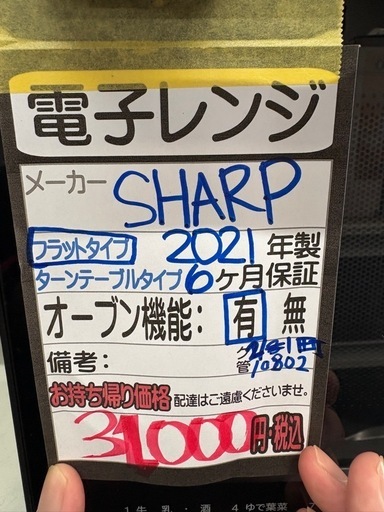 電子レンジ
メーカー SHARP
フラットタイプ 2021年製
ターンテーブルタイプ 6ヶ月保証
オーブン機能: 有 無
備考:
管10802
お持ち帰り価格 配達はご遠慮くださいませ。
31000円・税込
1 牛 乳 ・ 酒 4 ゆで葉菜 7